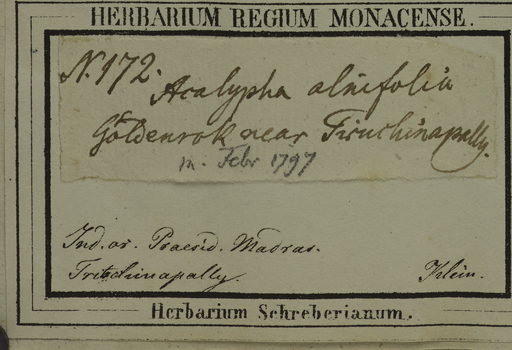 HERBARIUM REGIUM MONACENSE.
N. 172.
Acalypha alnifolia
Goldenrok near Tiruchinapally.
m. Febr 1797
Ind. or. Praesid. Madras.
Tritschinapally.
Klein.
Herbarium Schreberianum.